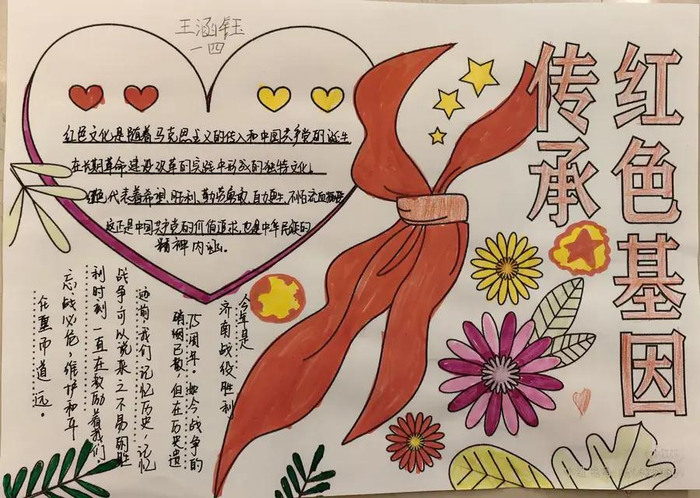 王涵钰
一四
传承
红色基因
红色文化是随着马克思主义的传入和中国共产党的诞生
在长期革命建设改革的实践中形成的独特文化。
代表着希望、胜利、勤劳勇敢、自力更生、不怕流血牺牲
这正是中国共产党的价值追求,也是中华民族的
精神内
今年是
济南战役胜利
75周年。如今战争的
硝烟已散,但在历史遗
迹前,我们记忆历史,记忆
战争可以说来之不易的胜
利时刻一直在教励着我们
忘战必危,维护和平
任重而道远。